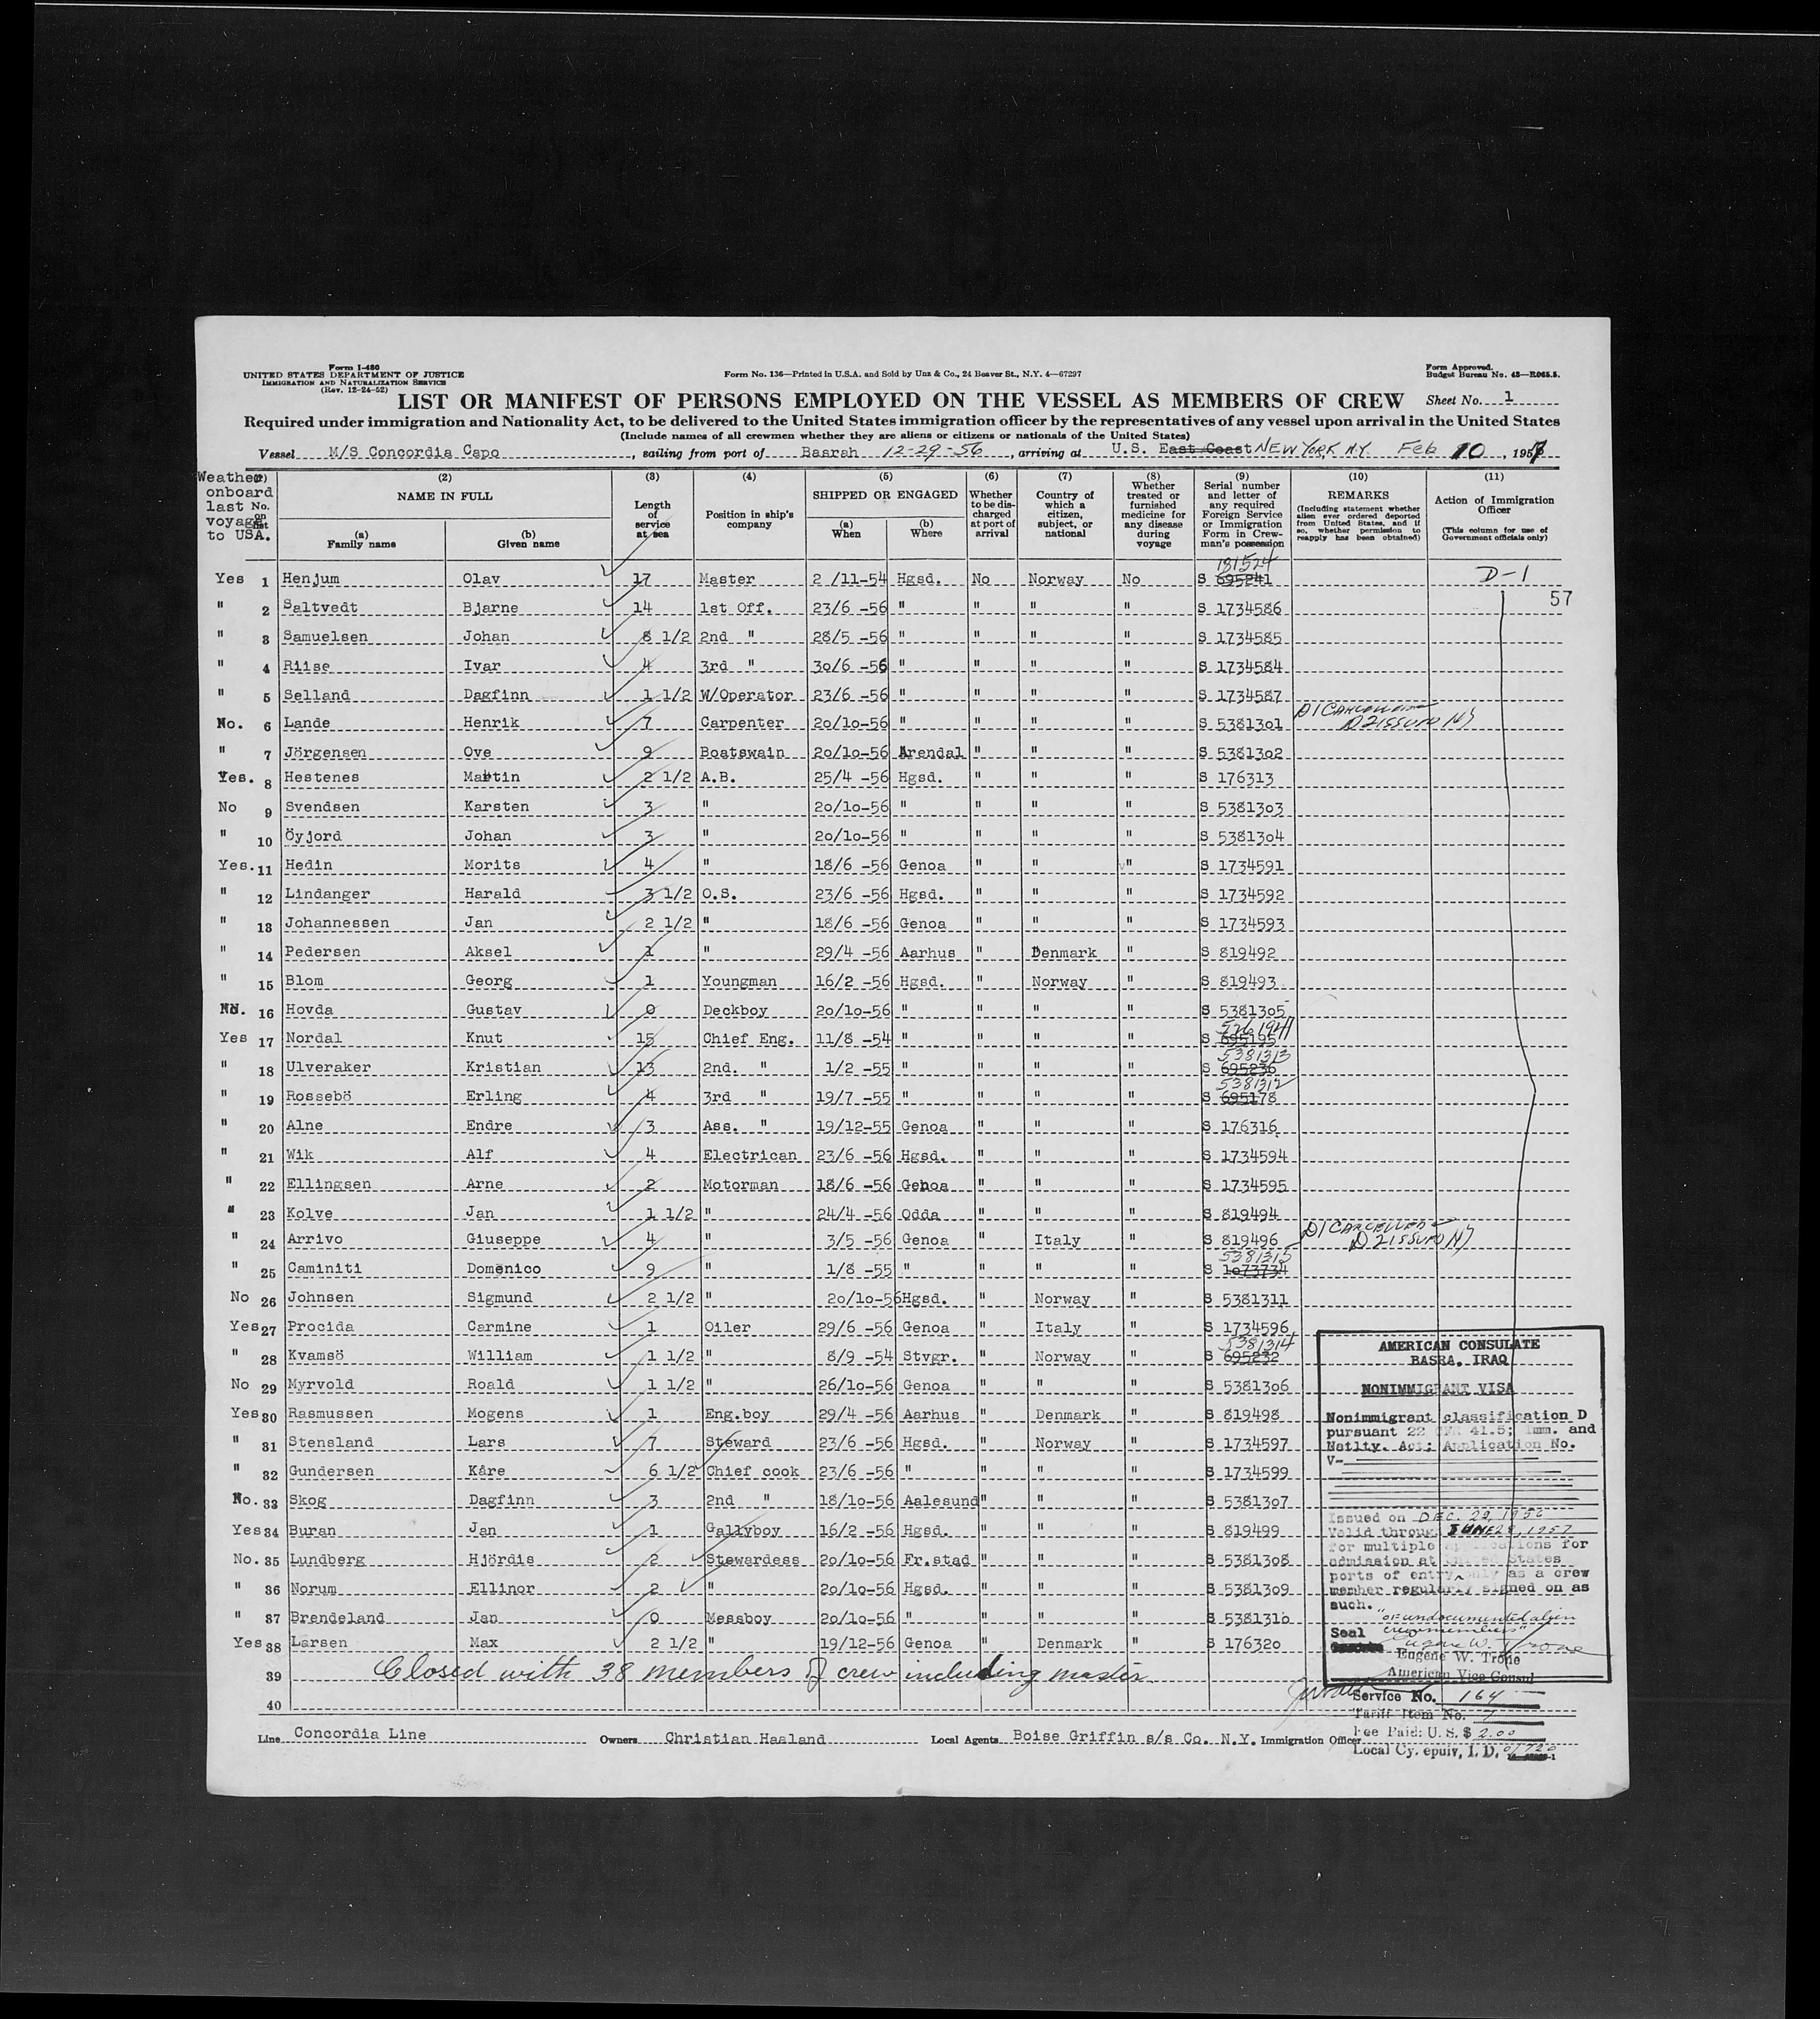 Form I-480
UNITED STATES DEPARTMENT OF JUSTICE
IMMIGRATION AND NATURALIZATION SERVICE
(Rev. 12-24-52)
Form No. 136—Printed in U.S.A. and Sold by Unz & Co., 24 Beaver St., N.Y. 4—67297
Form Approved.
Budget Bureau No. 43—R065.5.
LIST OR MANIFEST OF PERSONS EMPLOYED ON THE VESSEL AS MEMBERS OF CREW Sheet No. 1
Required under immigration and Nationality Act, to be delivered to the United States immigration officer by the representatives of any vessel upon arrival in the United States
(Include names of all crewmen whether they are aliens or citizens or nationals of the United States)
Vessel M/S Concordia Capo, sailing from port of Basrah 12-29-56, arriving at U.S. East Coast NEW YORK N.Y. Feb 10, 1957
Weather onboard last voyage to USA.
No. on list
(2) NAME IN FULL
(a) Family name
(b) Given name
(3) Length of service at sea
(4) Position in ship's company
(5) SHIPPED OR ENGAGED
(a) When
(b) Where
(6) Whether to be discharged at port of arrival
(7) Country of which a citizen, subject, or national
(8) Whether treated or furnished medicine for any disease during voyage
(9) Serial number and letter of any required Foreign Service or Immigration Form in Crewman's possession
(10) REMARKS (Including statement whether alien ever ordered deported from United States, and if so, whether permission to reapply has been obtained)
(11) Action of Immigration Officer (This column for use of Government officials only)
181524
Yes 1 Henjum Olav 17 Master 2 /11-54 Hgsd. No Norway No S 695241 D-1
57
" 2 Saltvedt Bjarne 14 1st Off. 23/6 -56 " " " " S 1734586
" 3 Samuelsen Johan 8 1/2 2nd " 28/5 -56 " " " " S 1734585
" 4 Riise Ivar 4 3rd " 30/6 -56 " " " " S 1734584
" 5 Selland Dagfinn 1 1/2 W/Operator 23/6 -56 " " " " S 1734587
No. 6 Lande Henrik 7 Carpenter 20/10-56 " " " " S 5381301 D1 CANCELLED D2 ISSUED NY
" 7 Jörgensen Ove 9 Boatswain 20/10-56 Arendal " " " S 5381302
Yes. 8 Hestenes Martin 2 1/2 A.B. 25/4 -56 Hgsd. " " " S 176313
No 9 Svendsen Karsten 3 " 20/10-56 " " " " S 5381303
" 10 Öyjord Johan 3 " 20/10-56 " " " " S 5381304
Yes. 11 Hedin Morits 4 " 18/6 -56 Genoa " " " S 1734591
" 12 Lindanger Harald 3 1/2 O.S. 23/6 -56 Hgsd. " " " S 1734592
" 13 Johannessen Jan 2 1/2 " 18/6 -56 Genoa " " " S 1734593
" 14 Pedersen Aksel 1 " 29/4 -56 Aarhus " Denmark " S 819492
" 15 Blom Georg 1 Youngman 16/2 -56 Hgsd. " Norway " S 819493
No. 16 Hovda Gustav 0 Deckboy 20/10-56 " " " " S 5381305
Yes 17 Nordal Knut 15 Chief Eng. 11/8 -54 " " " " S 695195
5381313
" 18 Ulveraker Kristian 13 2nd. " 1/2 -55 " " " " S 695236
5381312
" 19 Rossebö Erling 4 3rd " 19/7 -55 " " " " S 695178
" 20 Alne Endre 3 Ass. " 19/12-55 Genoa " " " S 176316
" 21 Wik Alf 4 Electrican 23/6 -56 Hgsd. " " " S 1734594
" 22 Ellingsen Arne 2 Motorman 18/6 -56 Genoa " " " S 1734595
" 23 Kolve Jan 1 1/2 " 24/4 -56 Odda " " " S 819494
" 24 Arrivo Giuseppe 4 " 3/5 -56 Genoa " Italy " S 819496 D1 CANCELLED D2 ISSUED NY
5381315
" 25 Caminiti Domenico 9 " 1/8 -55 " " " " S 1073734
No 26 Johnsen Sigmund 2 1/2 " 20/10-56 Hgsd. " Norway " S 5381311
Yes 27 Procida Carmine 1 Oiler 29/6 -56 Genoa " Italy " S 1734596
5381314
" 28 Kvamsö William 1 1/2 " 8/9 -54 Stvgr. " Norway " S 695232
No 29 Myrvold Roald 1 1/2 " 26/10-56 Genoa " " " S 5381306
Yes 30 Rasmussen Mogens 1 Eng.boy 29/4 -56 Aarhus " Denmark " S 819498
" 31 Stensland Lars 7 Steward 23/6 -56 Hgsd. " Norway " S 1734597
" 32 Gundersen Kåre 6 1/2 Chief cook 23/6 -56 " " " " S 1734599
No. 33 Skog Dagfinn 3 2nd " 18/10-56 Aalesund " " " S 5381307
Yes 34 Buran Jan 1 Gallyboy 16/2 -56 Hgsd. " " " S 819499
No. 35 Lundberg Hjördis 2 Stewardess 20/10-56 Fr.stad " " " S 5381308
" 36 Norum Ellinor 2 " 20/10-56 Hgsd. " " " S 5381309
" 37 Brendeland Jan 0 Messboy 20/10-56 " " " " S 5381310
Yes 38 Larsen Max 2 1/2 " 19/12-56 Genoa " Denmark " S 176320
39 Closed with 38 members of crew including master
40
AMERICAN CONSULATE
BASRA, IRAQ
NONIMMIGRANT VISA
Nonimmigrant classification D
pursuant 22 CFR 41.5; Imm. and
Natlty. Act; Application No.
V-
Issued on DEC. 29, 1956
Valid through JUNE 28, 1957
for multiple applications for
admission at United States
ports of entry only as a crew
member regularly signed on as
such.
"or undocumented alien
crewmembers"
Seal
Eugene W. Trone
Eugene W. Trone
American Vice Consul
Service No. 164
Tariff Item No. 7
Fee Paid: U. S. $ 2.00
Local Cy. equiv, I. D.
Line Concordia Line Owners Christian Haaland Local Agents Boise Griffin s/s Co. N.Y. Immigration Officer